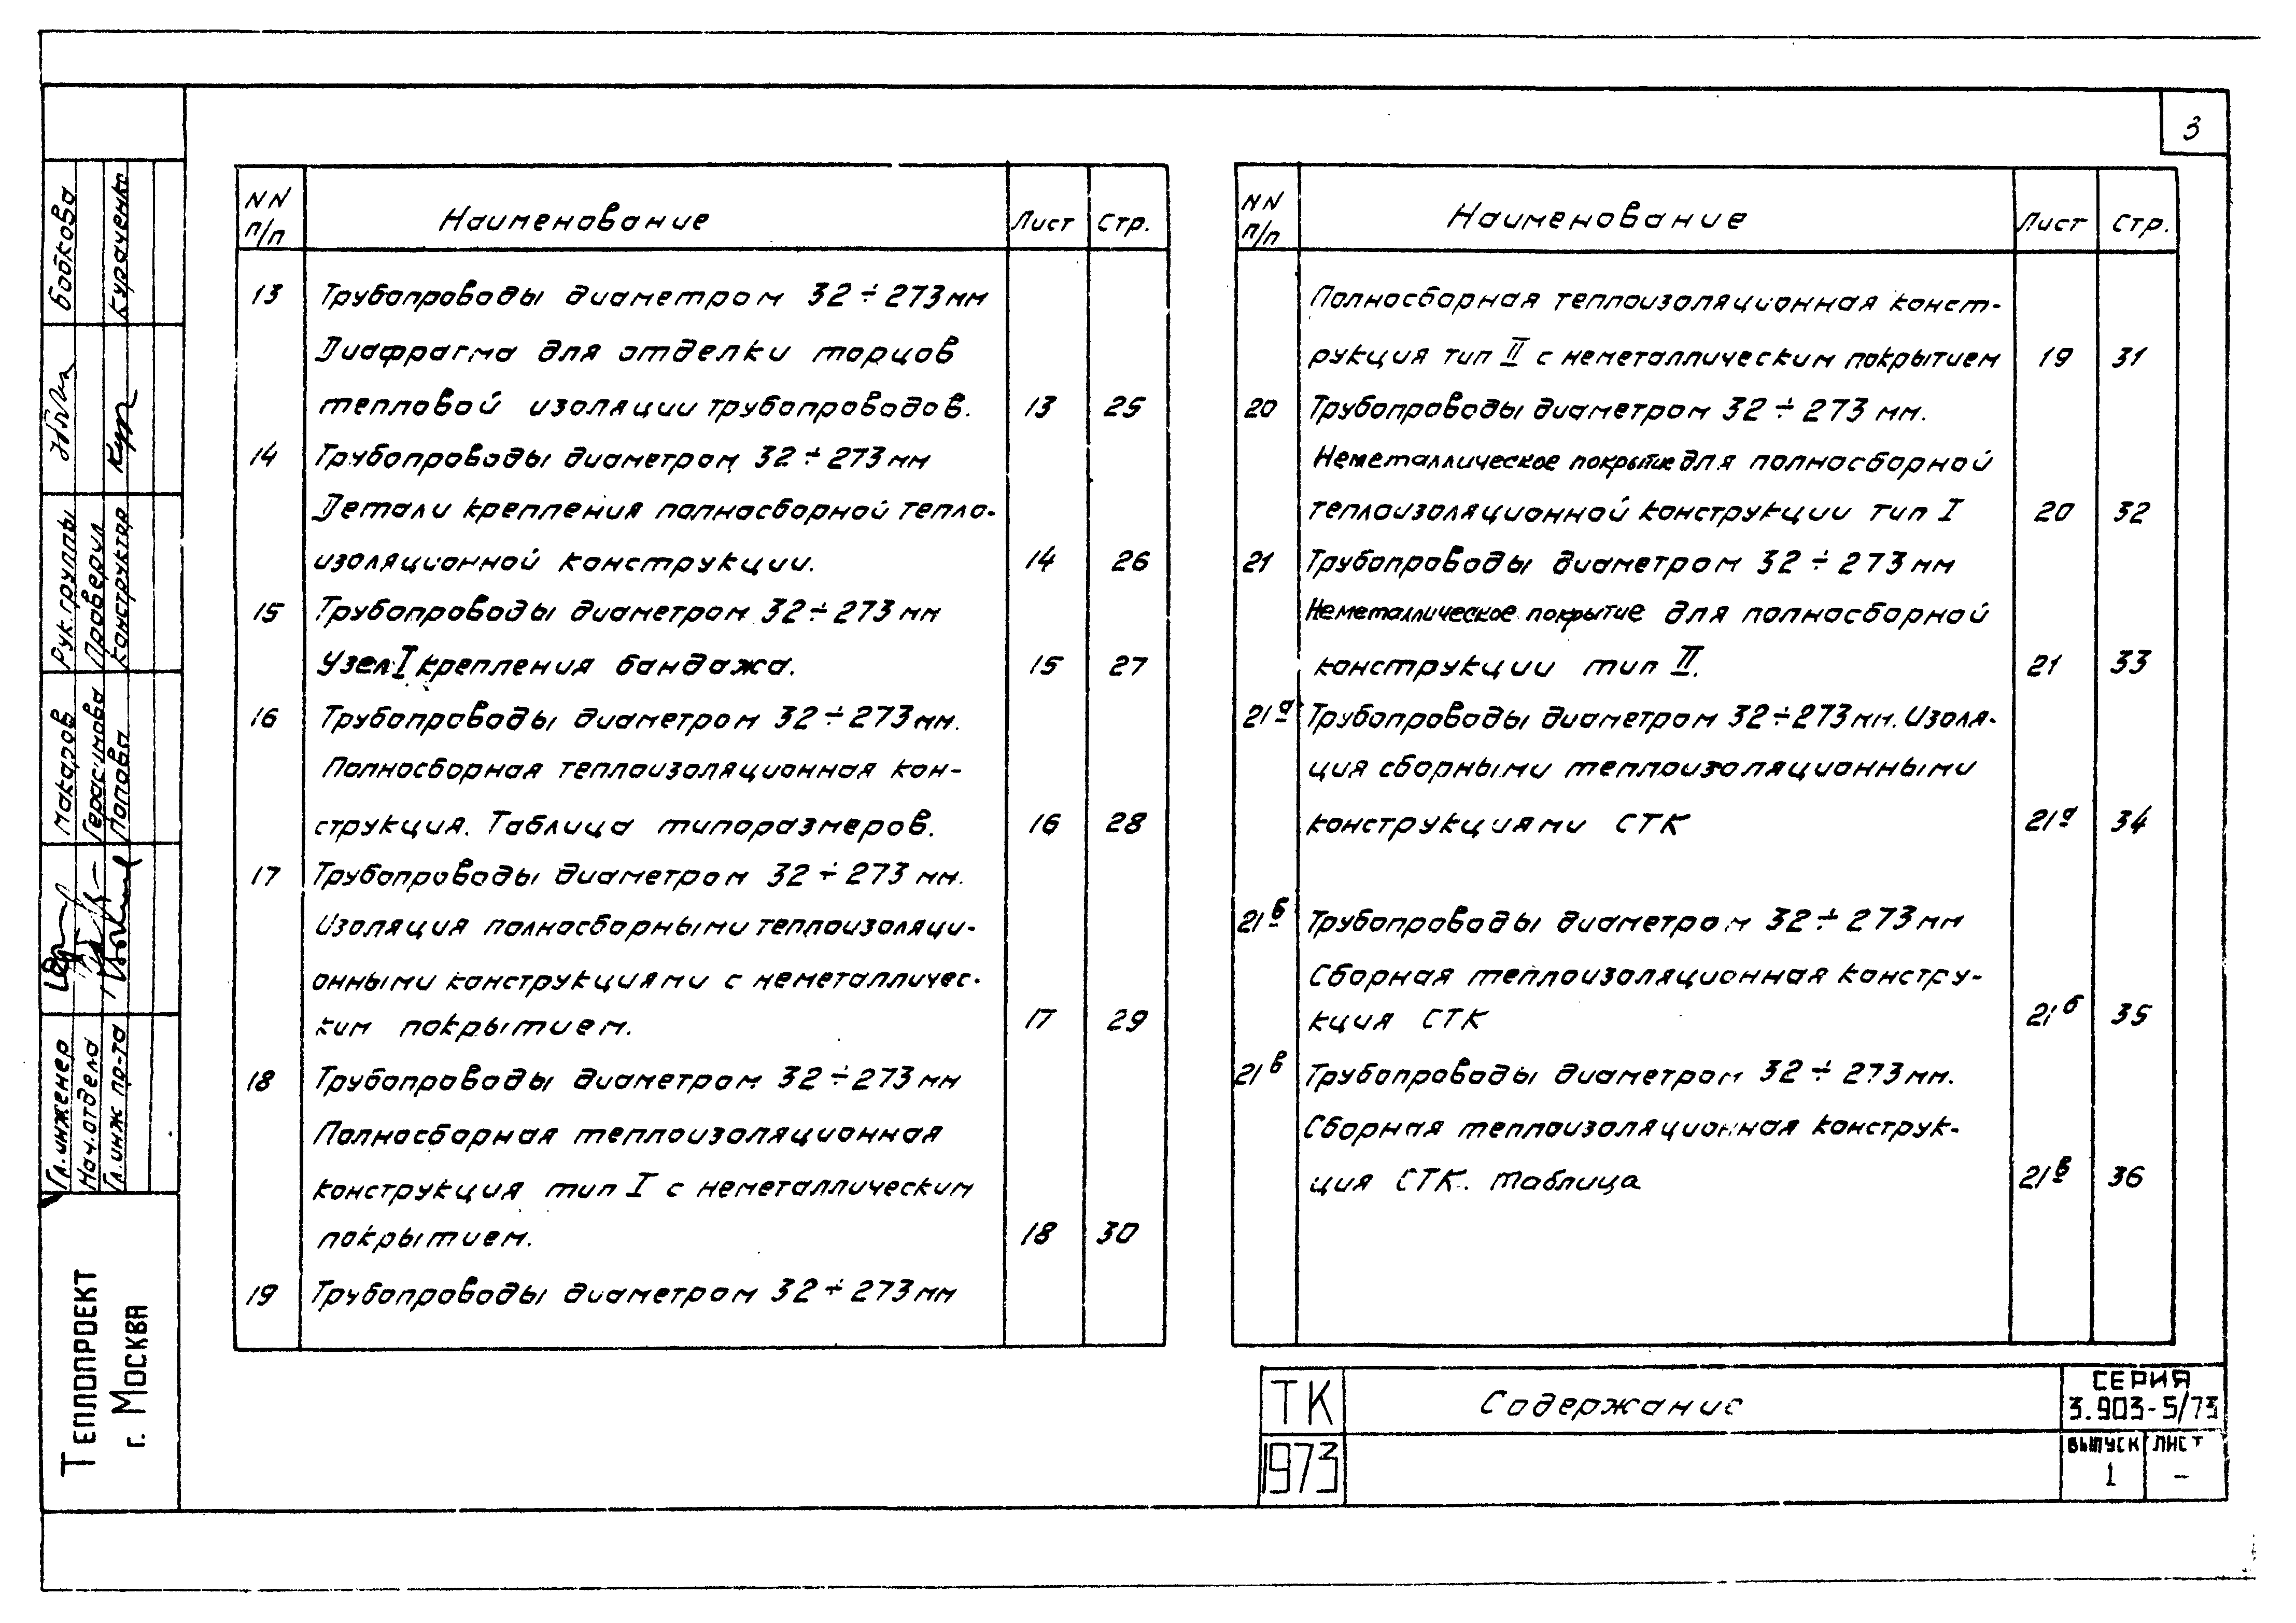 3
NN п/п Наименование Лист Стр.
13 Трубопроводы диаметром 32÷273мм
Диафрагма для отделки торцов
тепловой изоляции трубопроводов. 13 25
14 Трубопроводы диаметром 32÷273мм
Детали крепления полносборной тепло-
изоляционной конструкции. 14 26
15 Трубопроводы диаметром 32÷273мм
Узел I крепления бандажа. 15 27
16 Трубопроводы диаметром 32÷273мм.
Полносборная теплоизоляционная кон-
струкция. Таблица типоразмеров. 16 28
17 Трубопроводы диаметром 32÷273 мм.
Изоляция полносборными теплоизоляци-
онными конструкциями с неметалличес-
ким покрытием. 17 29
18 Трубопроводы диаметром 32÷273мм
Полносборная теплоизоляционная
конструкция тип I с неметаллическим
покрытием. 18 30
19 Трубопроводы диаметром 32÷273мм
NN п/п Наименование Лист Стр.
Полносборная теплоизоляционная конст-
рукция тип II с неметаллическим покрытием 19 31
20 Трубопроводы диаметром 32÷273 мм.
Неметаллическое покрытие для полносборной
теплоизоляционной конструкции тип I 20 32
21 Трубопроводы диаметром 32÷273мм
Неметаллическое покрытие для полносборной
конструкции тип II. 21 33
21а Трубопроводы диаметром 32÷273мм. Изоля-
ция сборными теплоизоляционными
конструкциями СТК 21а 34
21б Трубопроводы диаметром 32÷273мм
Сборная теплоизоляционная констру-
кция СТК 21б 35
21в Трубопроводы диаметром 32÷273мм.
Сборная теплоизоляционная конструк-
ция СТК. Таблица 21в 36
ТК
1973
Содержание
СЕРИЯ
3.903-5/73
ВЫПУСК ЛИСТ
1 —
Гл. инженер Макаров Рук. группы Бобкова
Нач. отдела Герасимова Проверил
Гл. инж пр-та Попова Конструктор Кур Кураченко
ТЕПЛОПРОЕКТ
г. МОСКВА